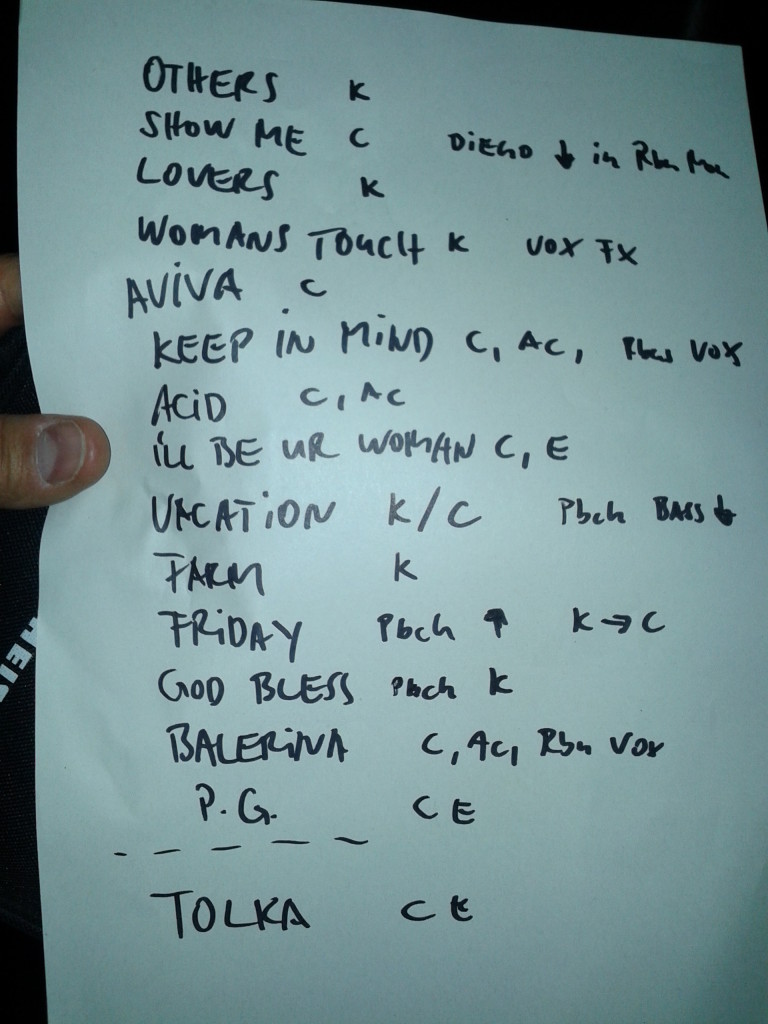 OTHERS K
SHOW ME C DIEGO ↓ in
LOVERS K
WOMANS TOUCH K VOX FX
AVIVA C
KEEP IN MIND C, AC, VOX
ACID C, AC
ILL BE UR WOMAN C, E
VACATION K/C Pbck BASS ↓
FARM K
FRIDAY Pbck ↑ K → C
GOD BLESS Pbck K
BALERINA C, AC, VOX
P.G. C E
TOLKA C E